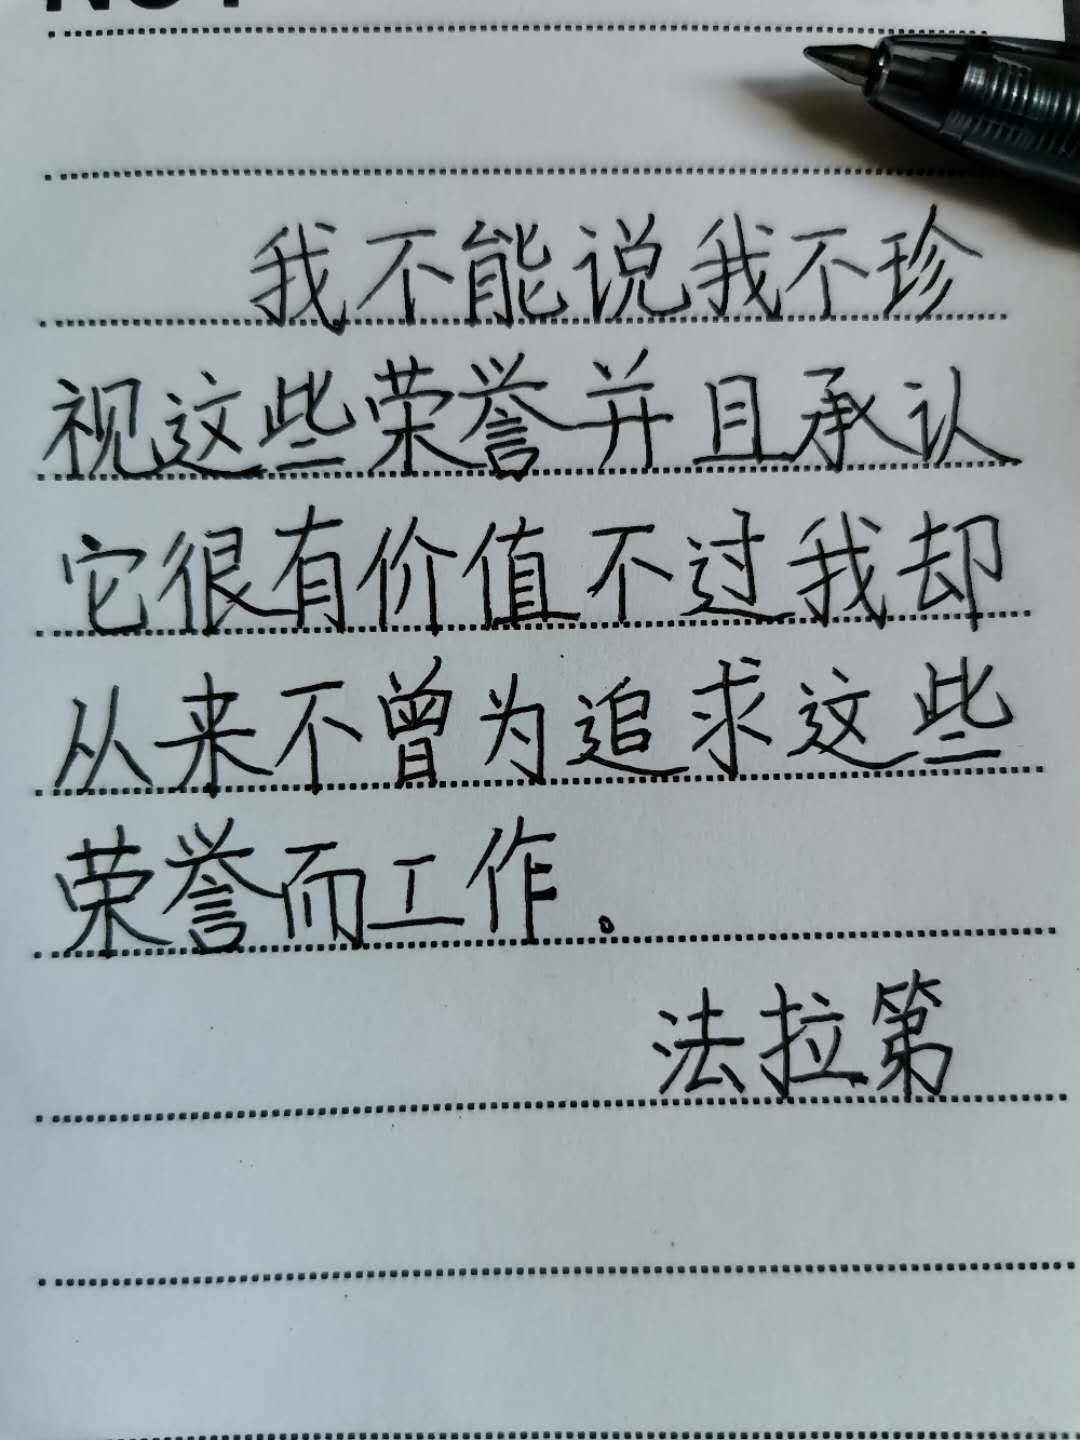 我不能说我不珍
视这些荣誉并且承认
它很有价值不过我却
从来不曾为追求这些
荣誉而工作。
法拉第